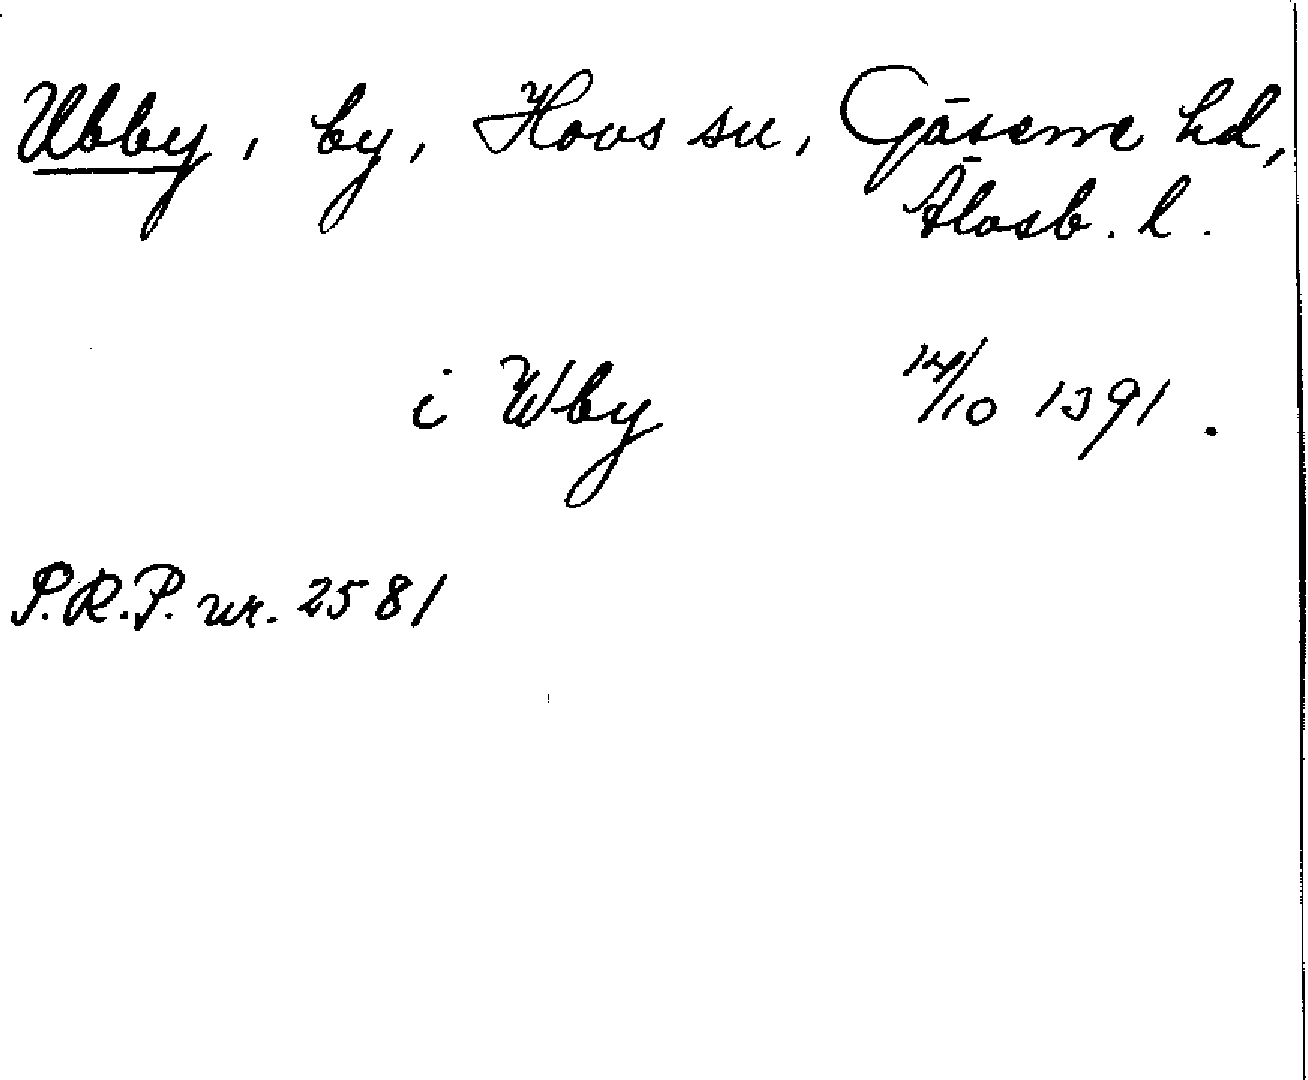 Ubby, by, Hovs sn, Gäsene hd,
Älvsb. l.
i Wby 14/10 1391.
P.R.P. nr. 2581